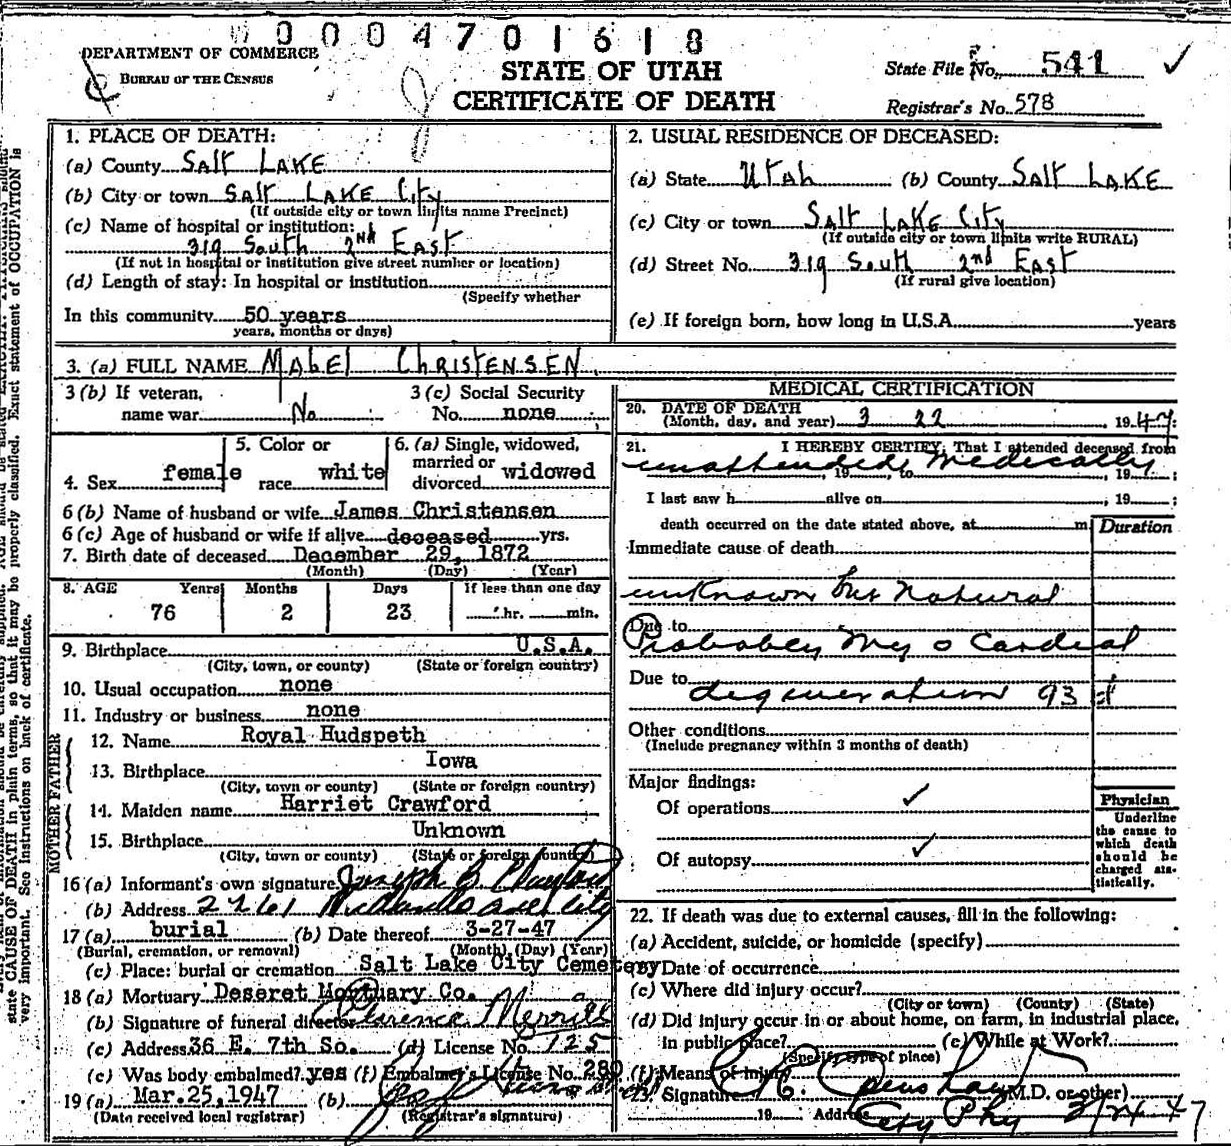 0004701618
DEPARTMENT OF COMMERCE
BUREAU OF THE CENSUS
STATE OF UTAH
CERTIFICATE OF DEATH
State File No. 541
Registrar's No. 578
1. PLACE OF DEATH:
(a) County SALT LAKE
(b) City or town SALT LAKE City
(If outside city or town limits name Precinct)
(c) Name of hospital or institution:
319 South 2ND EAST
(If not in hospital or institution give street number or location)
(d) Length of stay: In hospital or institution
(Specify whether
In this community 50 years
years, months or days)
2. USUAL RESIDENCE OF DECEASED:
(a) State Utah (b) County SALT LAKE
(c) City or town SALT LAKE City
(If outside city or town limits write RURAL)
(d) Street No. 319 South 2nd EAST
(If rural give location)
(e) If foreign born, how long in U.S.A. years
3. (a) FULL NAME MAbEl ChRISTENSEN
3 (b) If veteran, name war No
3 (c) Social Security No. none
4. Sex female
5. Color or race white
6. (a) Single, widowed, married or divorced widowed
6 (b) Name of husband or wife James Christensen
6 (c) Age of husband or wife if alive deceased yrs.
7. Birth date of deceased December 29, 1872
(Month) (Day) (Year)
8. AGE Years Months Days If less than one day
76 2 23 hr. min.
9. Birthplace U.S.A.
(City, town, or county) (State or foreign country)
10. Usual occupation none
11. Industry or business none
FATHER
12. Name Royal Hudspeth
13. Birthplace Iowa
(City, town or county) (State or foreign country)
MOTHER
14. Maiden name Harriet Crawford
15. Birthplace Unknown
(City, town, or county) (State or foreign country)
16 (a) Informant's own signature Joseph
(b) Address City
17 (a) burial (b) Date thereof 3-27-47
(Burial, cremation, or removal) (Month) (Day) (Year)
(c) Place: burial or cremation Salt Lake City Cemetery
18 (a) Mortuary Deseret Mortuary Co.
(b) Signature of funeral director Clarence Merrill
(c) Address 36 E. 7th So. (d) License No. 125
(e) Was body embalmed? yes (f) Embalmer's License No.
19 (a) Mar. 25, 1947 (b)
(Date received local registrar) (Registrar's signature)
MEDICAL CERTIFICATION
20. DATE OF DEATH
(Month, day, and year) 3 22, 1947
21. I HEREBY CERTIFY: That I attended deceased from
unattended Medically, 19, to, 19;
I last saw h alive on, 19;
death occurred on the date stated above, at m.
Duration
Immediate cause of death
unknown but Natural
Due to
Probabley Myo Cardial
Due to
degeneration 93 d
Other conditions
(Include pregnancy within 3 months of death)
Major findings:
Of operations ✓
Of autopsy ✓
Physician
Underline
the cause to
which death
should be
charged sta-
tistically.
22. If death was due to external causes, fill in the following:
(a) Accident, suicide, or homicide (specify)
(b) Date of occurrence
(c) Where did injury occur?
(City or town) (County) (State)
(d) Did injury occur in or about home, on farm, in industrial place,
in public place? (e) While at Work?
(Specify type of place)
(f) Means of injury
23. Signature (M.D. or other)
19 Address City Phy 3/24 47
state CAUSE OF DEATH in plain terms, so that it may be properly classified. Exact statement of OCCUPATION is
very important. See instructions on back of certificate.